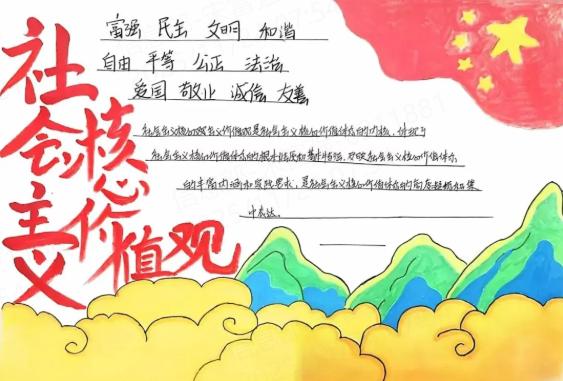 社会主义
核心价值观
富强 民主 文明 和谐
自由 平等 公正 法治
爱国 敬业 诚信 友善
社会主义核心价值观是社会主义核心价值体系的内核，体现了
社会主义核心价值体系的根本性质和基本特征，反映社会主义核心价值体系
的丰富内涵和实践要求，是社会主义核心价值体系的高度凝练和集
中表达。